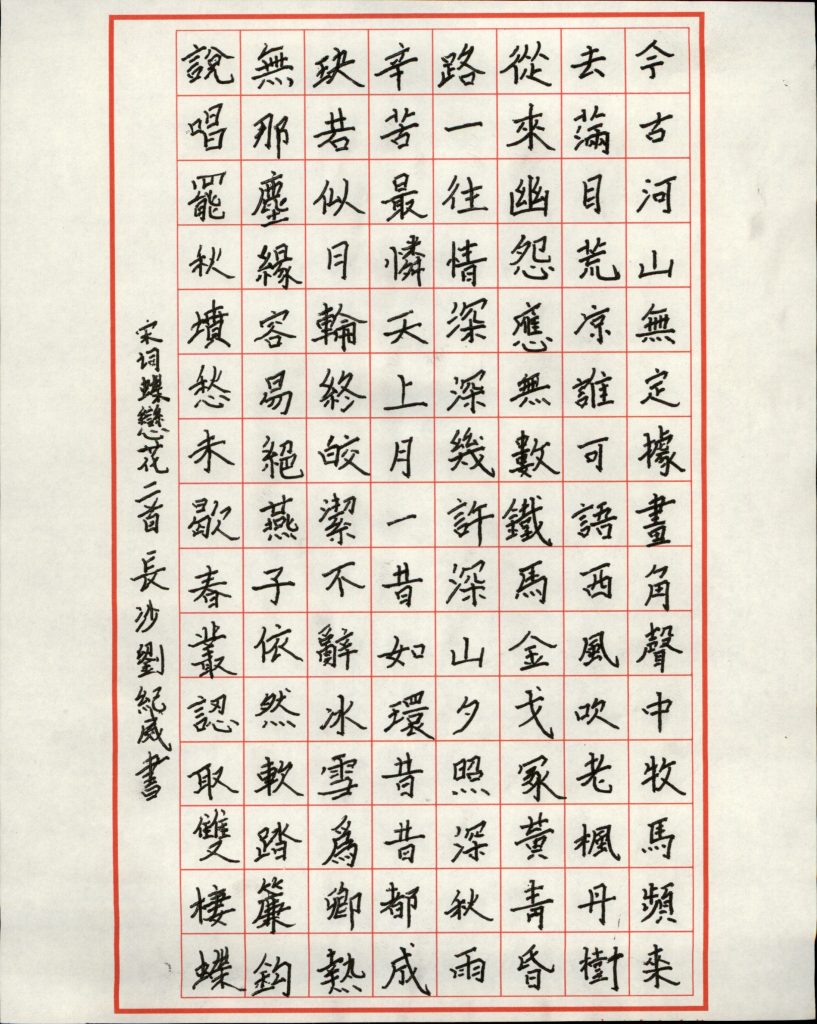 今古河山無定據畫角聲中牧馬頻來
去滿目荒凉誰可語西風吹老楓丹樹
從來幽怨應無數鐵馬金戈冢黃青昏
路一往情深深幾許深山夕照深秋雨
辛苦最憐天上月一昔如環昔昔都成
玦若似月輪終皎潔不辭冰雪爲卿熱
無那塵緣容易絕燕子依然軟踏簾鈎
說唱罷秋墳愁未歇春叢認取雙棲蝶
宋词蝶戀花二首 長沙劉紀威書